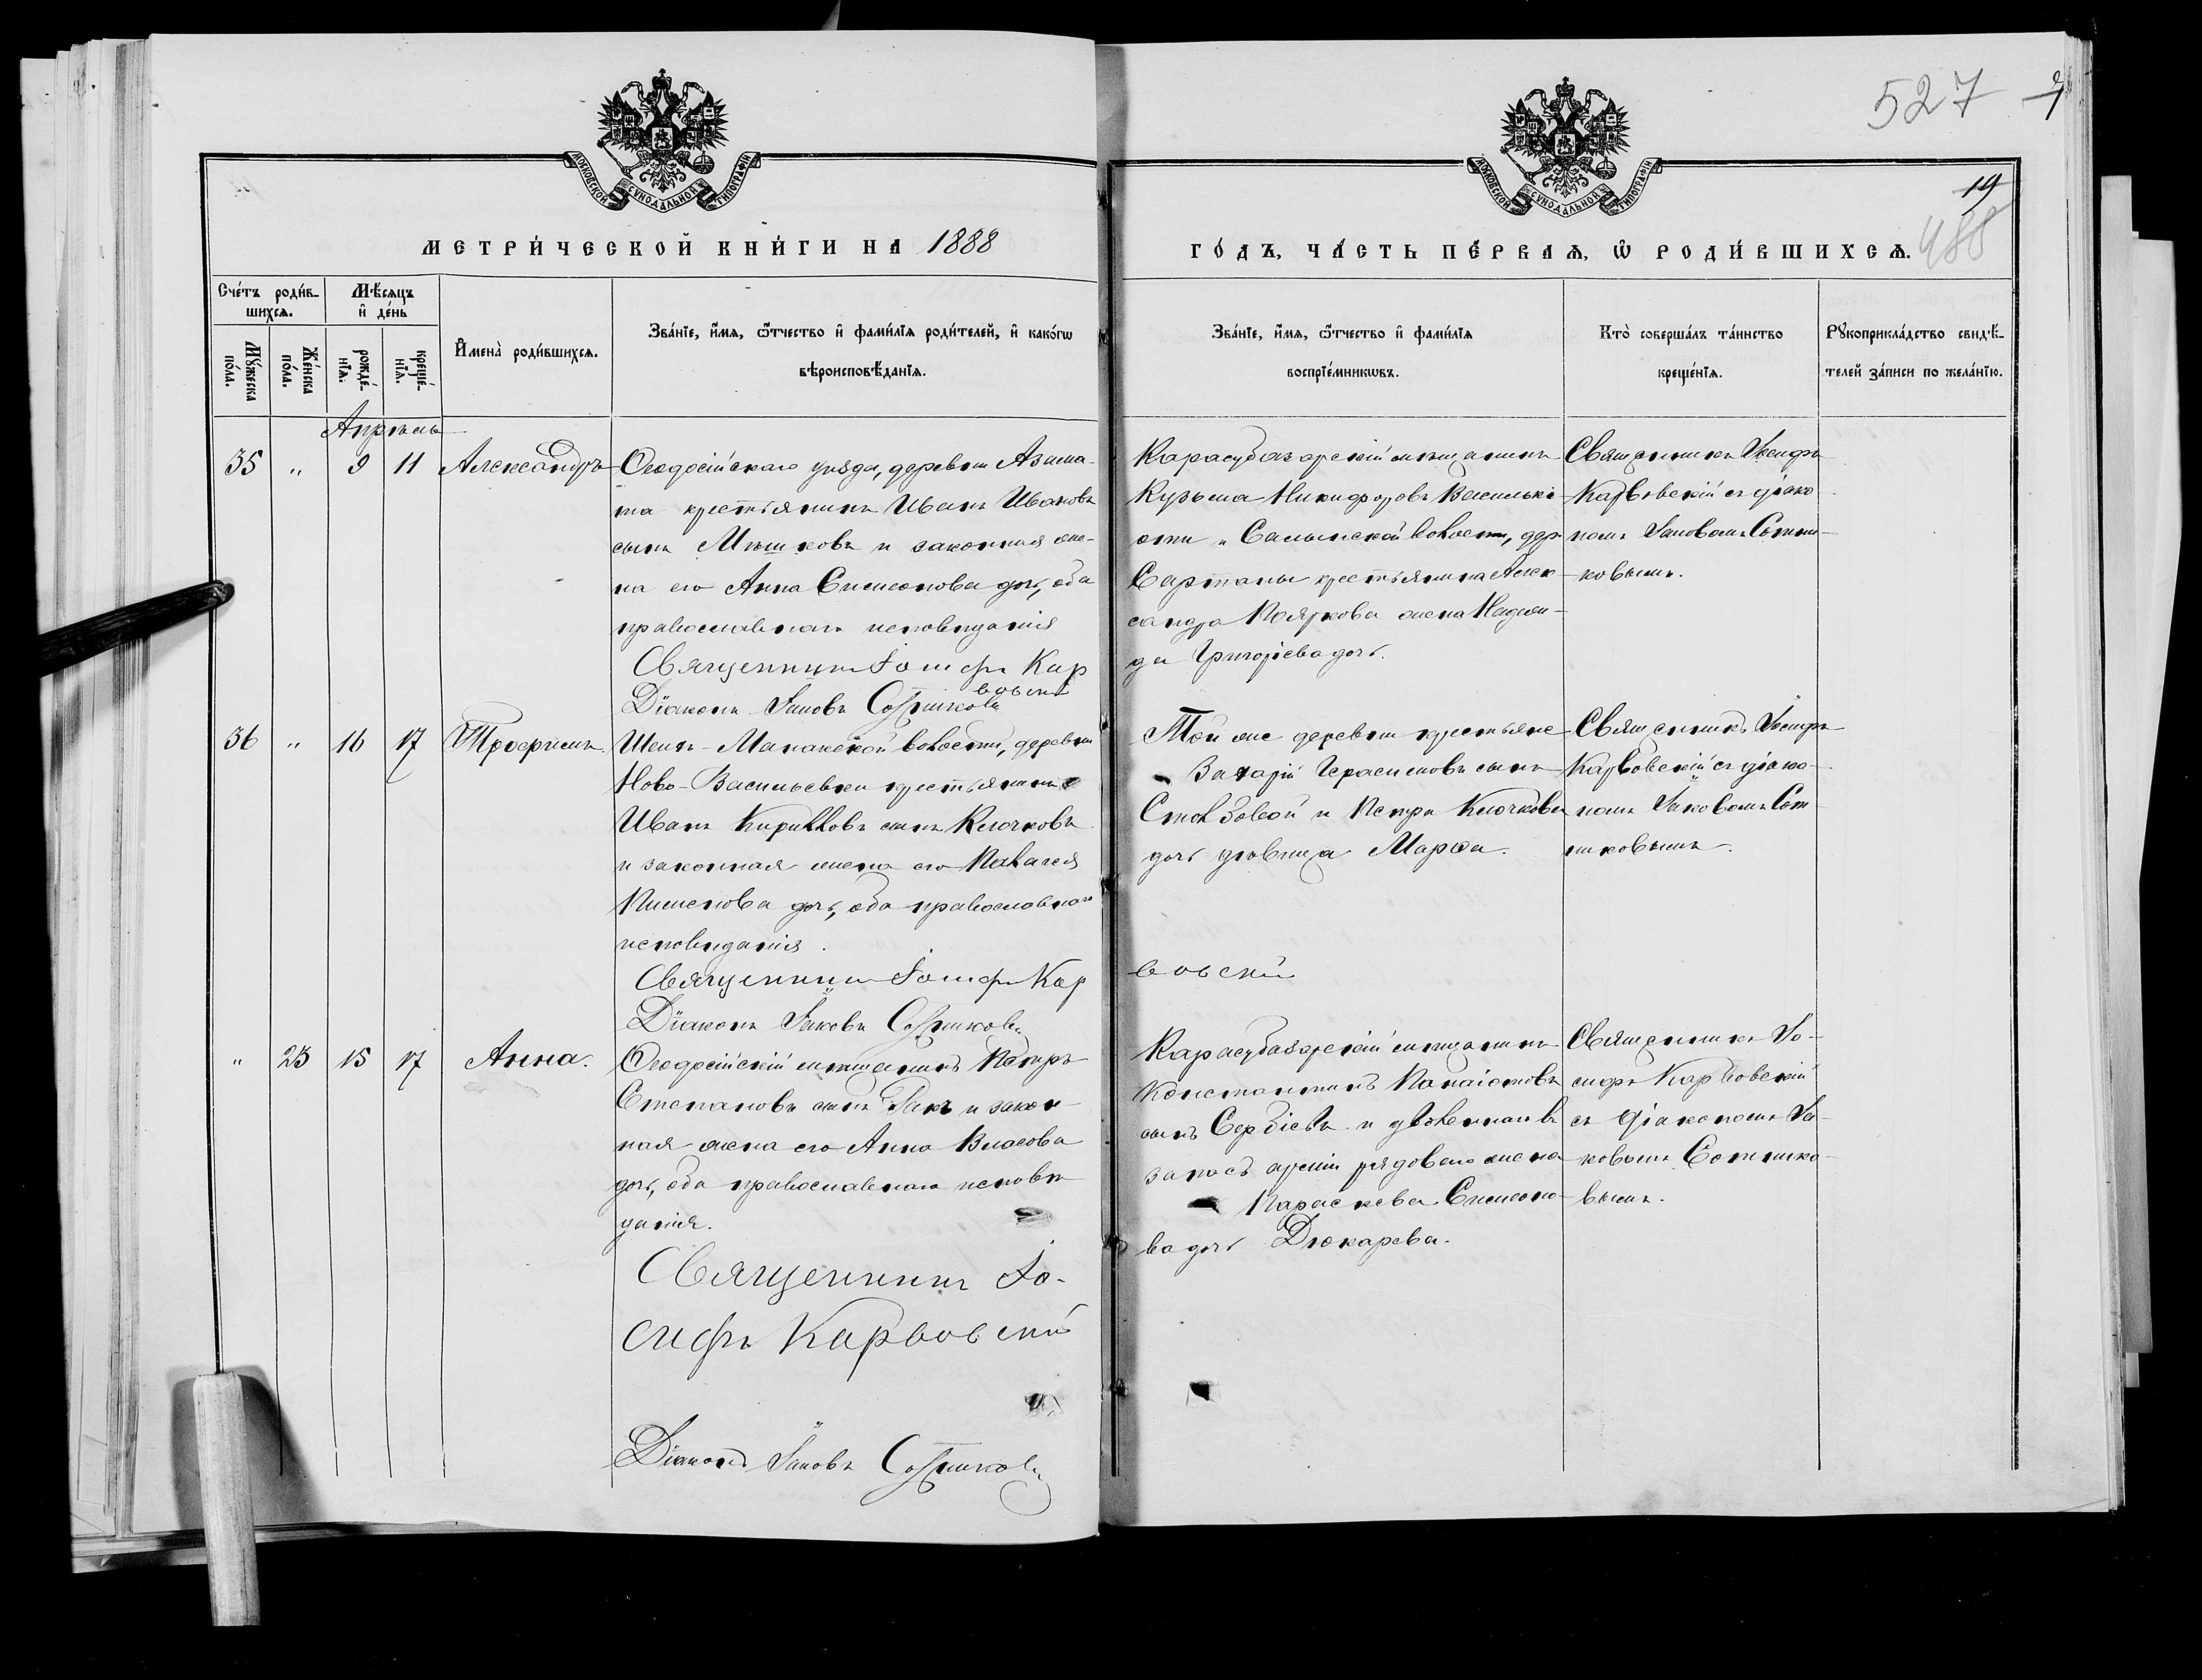 527
19
488
МОСКОВСКОЙ СѴНОДАЛЬНОЙ ТИПОГРАФІИ
МОСКОВСКОЙ СѴНОДАЛЬНОЙ ТИПОГРАФІИ
МЕТРИ́ЧЕСКОЙ КНИ́ГИ НА 1888
ГО́ДЪ, ЧА́СТЬ ПЕ́РВАЯ, Ѡ҆ РОДИ́ВШИХСЯ.
Сче́тъ роди́в-
шихся.
Мꙋ́жеска по́ла.
Же́нска по́ла.
Мѣ́сяцъ
и҆ де́нь
рожде́-
нїя.
креще́-
нїя.
И҆мена̀ роди́вшихся.
Зва́нїе, и҆́мя, ѻ҆́тчество и҆ фами́лїя роди́телей, и҆ како́гѡ
вѣроисповѣ́данїя.
Зва́нїе, и҆́мя, ѻ҆́тчество и҆ фами́лїя
воспрїе́мникѡвъ.
Кто̀ соверша́лъ та́инство
креще́нїя.
Рꙋкоприкла́дство свидѣ́-
телей за́писи по жела́нїю.
Апрѣль
35 " 9 11 Александръ
Ѳеодосійскаго уѣзда, деревни Азама-
та крестьянинъ Иванъ Ивановъ
сынъ Мѣшковъ и законная же-
на его Анна Симеонова дочь, оба
православнаго исповѣданія
Священникъ Іосифъ Кар
вовскій
Діаконъ Іаковъ Сотниковъ
Карасубазарскій мѣщанинъ
Курьма Никифоровъ Василькі
оти и Салынской волости, дер.
Сартаны крестьянина Алек-
сандра Пояркова жена Надеж-
да Григорьева дочь.
Священникъ Іосифъ
Карвовскій съ діако
номъ Іаковомъ Сотни-
ковымъ.
36 " 16 17 Трофимъ.
Шеихъ-Манакской волости, деревни
Ново-Васильевки крестьянинъ
Иванъ Кирилловъ сынъ Клочковъ
и законная жена его Пелагея
Пименова дочь, оба православнаго
исповѣданія.
Священникъ Іосифъ Кар
вовскій
Діаконъ Іаковъ Сотниковъ
Той же деревни крестьяне
Захарій Герасимовъ сынъ
Столбовой и Петра Клочкова
дочь дѣвица Марѳа.
Священникъ Іосифъ
Карвовскій съ діако-
номъ Іаковомъ Сот
никовымъ.
" 23 15 17 Анна.
Ѳеодосійскій мѣщанинъ Петръ
Степановъ сынъ Гакъ и закон-
ная жена его Анна Власова
дочь, оба православнаго исповѣ
данія.
Священникъ Іо-
сифъ Карвовскій
Діаконъ Іаковъ Сотниковъ
Карасубазарскій мѣщанинъ
Константинъ Панаіотовъ
сынъ Сербіевъ и уволеннаго въ
запасъ арміи рядоваго жена
Параскева Симеоно-
ва дочь Дюкарева.
Священникъ Іо-
сифъ Карвовскій
съ діакономъ Іа-
ковымъ Сотнико-
вымъ.